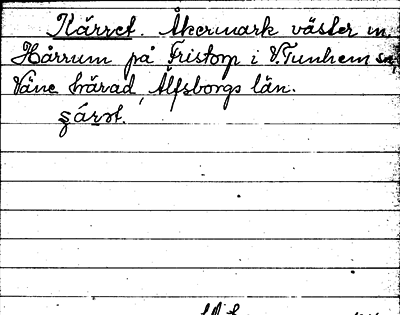 Kärret. Åkermark väster om
Hårrum på Fristorp i V. Tunhem sn,
Väne härad, Älfsborgs län.